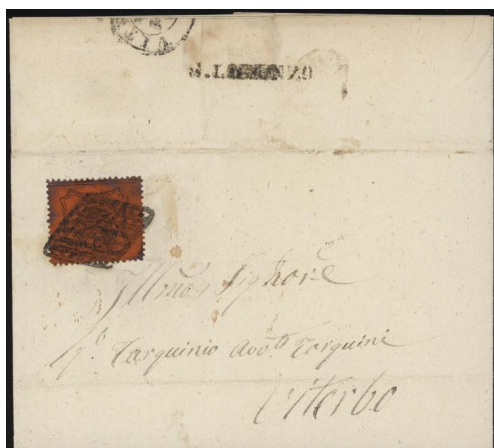 S. LORENZO
Illmo Signore
Tarquinio Avv.to Tarquini
Viterbo